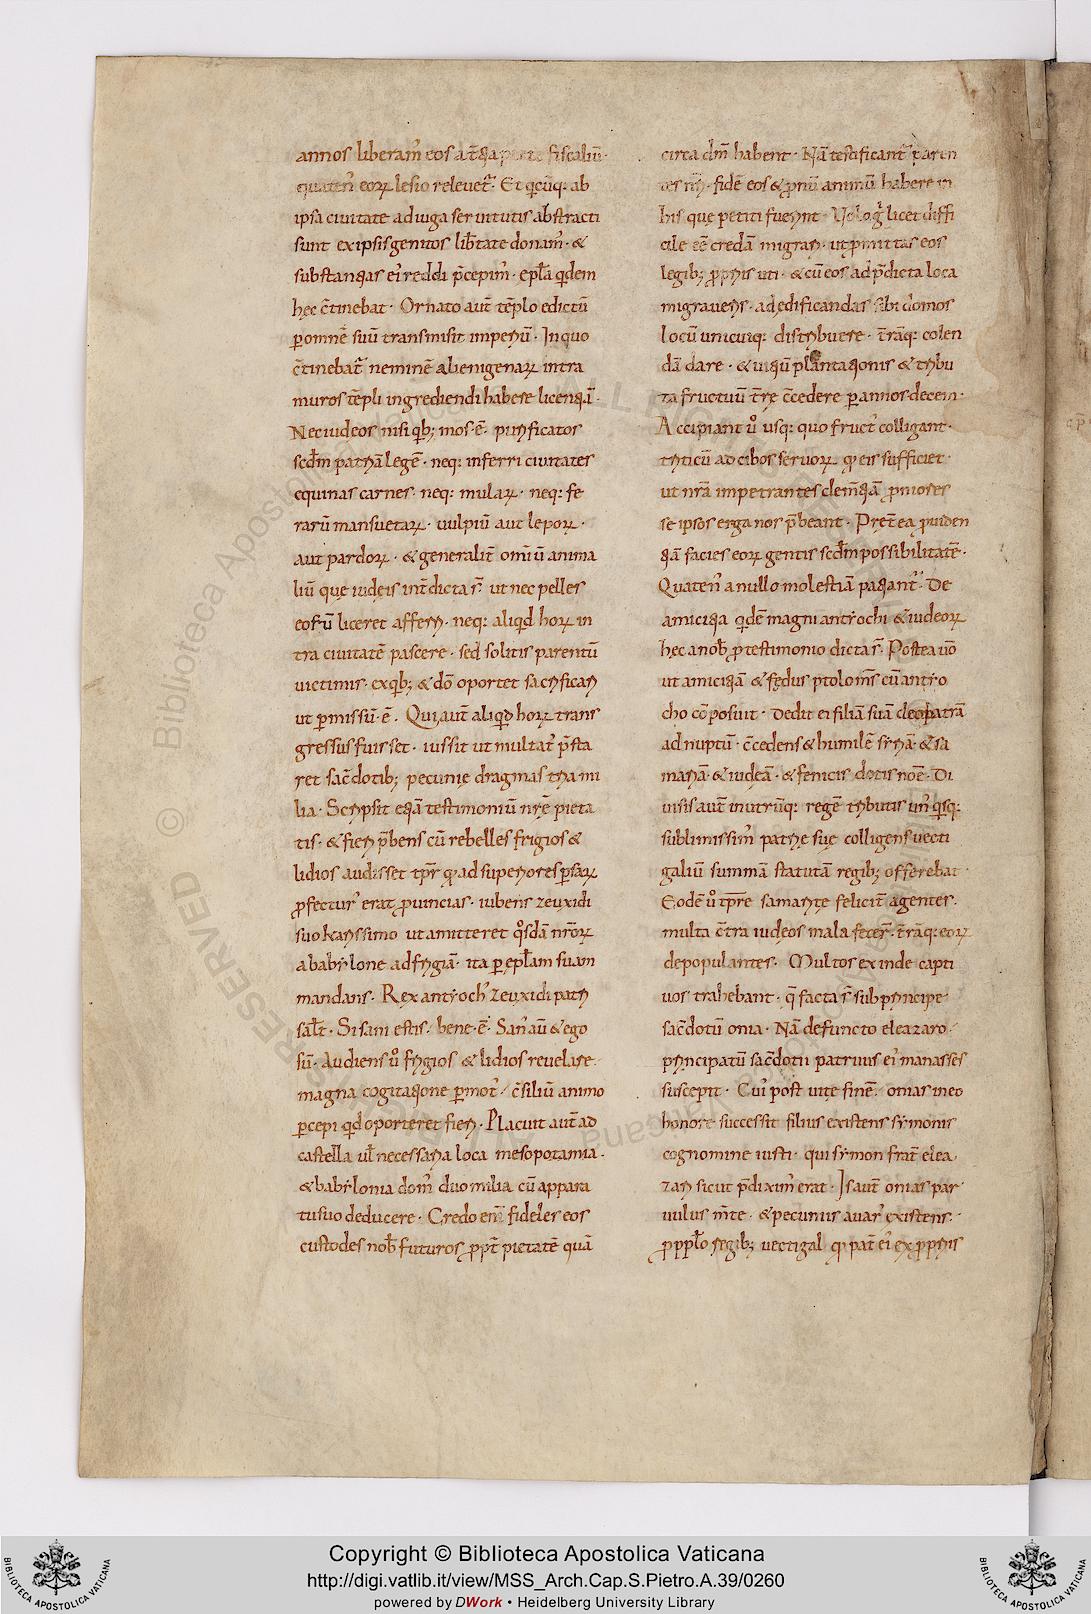 annos liberam᷒ eos a t̄tia parte fiscaliū·
quaten᷒ eorꝝ lesio relevet᷒· Et qͥcūq; ab
ipsa civitate ad iuga servitutis abstracti
sunt ex ipsis genitos lib̄tate donam᷒· &
substantias ei᷒ reddi p̄cepim᷒· epl̄a qͥdem
hec c̄tinebat· Ornato aut̄ tēplo edictū
ꝑ omnē suū transmisit imperiū· In quo
c̄tinebat᷒ neminē alienigenarꝝ intra
muros tēpli ingrediendi habere licentiā·
Nec iudeos nisi qͥb; mos ·ē· purificatos
scd̄m patriā legē· neq; inferri civitates
equinas carnes· neq; mularꝝ· neq; fe
rarū mansuetarꝝ· vulpiū aut leporꝝ·
aut pardorꝝ· & generalit̄ omiū anima
liū que iudęis int̄dicta s̄· ut nec pelles
eorū liceret afferri· neq; aliqͥd horꝝ in
tra civitatē pascere· sed solitis parentū
victimis· ex qͥb; & dō oportet sacrificari
ut ꝑmissū ·ē· Qui aut̄ aliqͥd horꝝ trans
gressus fuisset· iussit ut multat᷒ p̄sta
ret sac̄dotib; pecunię dragmas tria mi
lia· Scripsit etiā testimoniū nr̄ę pieta
tis· & fieri p̄bens cū rebelles frigios &
lidios audisset tp̄r qͦ ad superiores ꝑsarꝝ
ꝓfectur᷒ erat ꝓvincias· iubens zeuxidi
suo karissimo ut amitteret qͦsdā nr̄orꝝ
a babylone ad frigiā· ita ꝑ epl̄am suam
mandans· Rex antyoch᷒ zeuxidi patri
sal̄t· Si sani estis· bene ·ē· San᷒ aū & ego
sū· Audiens vͦ frigios & lidios revelare·
magna cogitatione ꝑmot᷒· c̄siliū animo
ꝑcepi qͥd oporteret fieri· Placuit aut̄ ad
castella vl̄ necessaria loca mesopotamia·
& babylonia dom᷒ duo milia cū appara
tu suo deducere· Credo eni᷒ fideles eos
custodes nob̄ futuros ꝓpt̄ pietatē quā
circa dm̄ habent· Nā testificant᷒ paren
tes nr̄i· fidē eos & ꝓnū animū habere in
his quę petiti fuerint· Volo g᷒ licet diffi
cile eē credā migrari· ut ꝓmittas eos
legib; ꝓpriis uti· & cū eos ad p̄dicta loca
migraveris· ad edificandas sibi domos
locū unicuiq; distribuere· t̄rāq; colen
dā dare· & vitiū plantationis & tribu
ta fructuū t̄rę c̄cedere ꝑ annos decem·
Accipiant vͦ usq; quo fruct᷒ colligant·
triticū ad cibos servorꝝ qͦ eis sufficiet·
ut nr̄ā impetrantes clem̄tiā ꝓniores
se ipsos erga nos p̄beant· Pret̄ea ꝓviden
tiā facies eorꝝ gentis scd̄m possibilitatē·
Quaten᷒ a nullo molestiā patiant᷒· De
amicitia qͥdē magni antyochi & iudeorꝝ
hec a nob̄ ꝓ testimonio dicta s̄· Postea vͦo
ut amicitiā & fędus ptolom᷒s cū antyo
cho cōposuit· dedit ei filiā suā cleopatrā
ad nuptū· c̄cedens & humilē syriā· & sa
mariā· & iudęā· & fenicis dotis noē· Di
visis aut̄ in utrūq; regē tributis un᷒ qͥsq;
sublimissim᷒ patrię suę colligens vecti
galiū summā statutā regib; offerebat·
Eodē vͦ tp̄re samaritę felicit̄ agentes·
multa c̄tra iudęos mala fecer̄· t̄rāq; eorꝝ
depopulantes· Multos exinde capti
vos trahebant· q̄ facta s̄ sub principe
sac̄dotū onia· Nā defuncto eleazaro·
principatū sac̄dotii patruus ei᷒ manasses
suscepit· Cui᷒ post vitę finē· onias in eo
honore successit filius existens symonis
cognomine iusti· qui symon frat̄ elea
zari sicut p̄dixim᷒ erat· Is aut̄ onias par
vulus m̄te· & pecuniis avar᷒ existens·
ꝓ ppl̄o regib; vectigal qͦ pat̄ ei᷒ ex ꝓpriis
Copyright © Biblioteca Apostolica Vaticana
http://digi.vatlib.it/view/MSS_Arch.Cap.S.Pietro.A.39/0260
powered by DWork • Heidelberg University Library